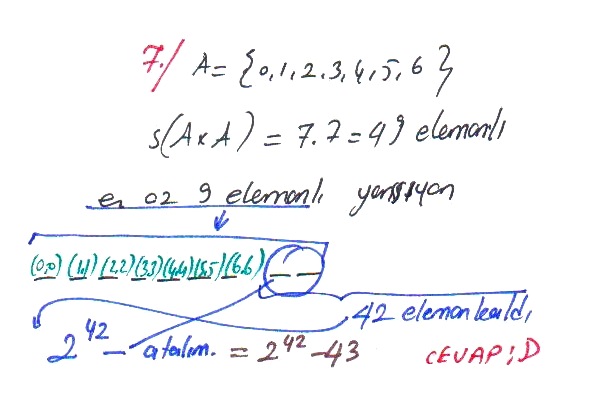 7./ A = {0,1,2,3,4,5,6}
s(AxA) = 7.7 = 49 elemanlı
en az 9 elemanlı yansıyan
(0,0) (1,1) (2,2) (3,3) (4,4) (5,5) (6,6) _ _
42 eleman kaldı,
2^42 - atalım. = 2^42 - 43
CEVAP: D